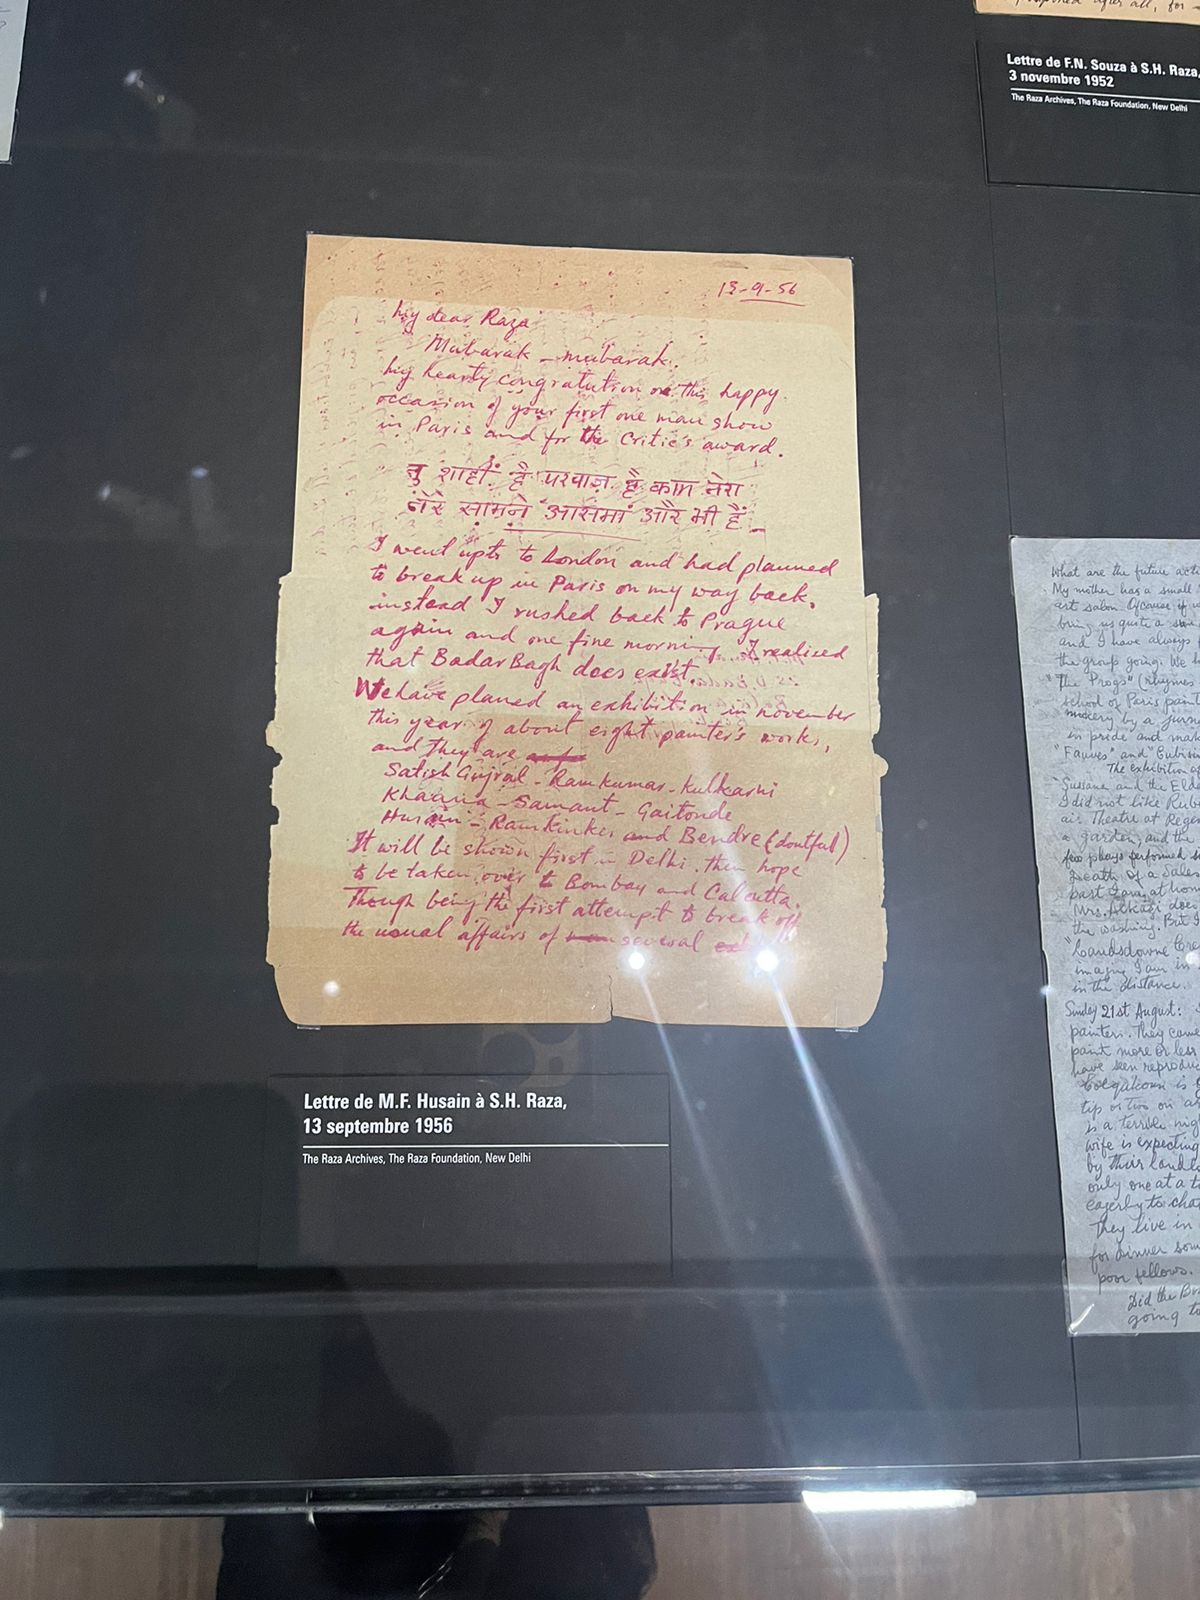 Lettre de F.N. Souza à S.H. Raza,
3 novembre 1952
The Raza Archives, The Raza Foundation, New Delhi
13-9-56
My dear Raza
Mubarak - mubarak.
My hearty congratution on this happy
occasion of your first one man show
in Paris and for the Critic's award.
तु शाहीं है परवाज़ है काम तेरा
तेरे सामने आसमां और भी हैं
I went upto to London and had planned
to break up in Paris on my way back,
instead I rushed back to Prague
again and one fine morning I realised
that Badar Bagh does exist.
We have planed an exhibition in november
this year of about eight painter's works,
and they are
Satish Gujral - Ramkumar - Kulkarni
Khanna - Samant - Gaitonde
Husain - Ramkinker and Bendre (doutful)
It will be shown first in Delhi. then hope
to be taken over to Bombay and Calcutta.
Though being the first attempt to break off
the usual affairs of several
Lettre de M.F. Husain à S.H. Raza,
13 septembre 1956
The Raza Archives, The Raza Foundation, New Delhi
What are the future
My mother has a small
art salon. Ofcourse if
bring us quite a
and I have always
the group going. We
"The Progs" (rhymes
school of Paris
mockery by a
in pride and
"Fauves" and
The exhibition
"Susana and the
I did not like
air Theatre at
a garden, and the
few plays performed
Death of a
part Zara, at
Mrs. Alkazi
the washing. But
"Landsdowne
imagine I am in
in the distance.
Sunday 21st August:
painter. They came
paint more or less
have seen
is
tip or two on
is a terrible
wife is expecting
by their
only one at a
eagerly to
They live in
for dinner
poor fellows.
Did the
going to